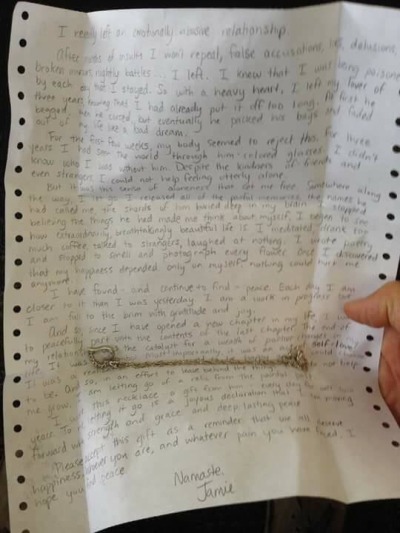 I recently left an emotionally abusive relationship.
After years of insults I won't repeat, false accusations, lies, delusions,
broken mirrors, nightly battles... I left. I knew that I was being poisoned
by each day that I stayed. So with a heavy heart, I left my lover of
three years knowing that I had already put it off too long. At first he
begged, then he cursed, but eventually he packed his bags and faded
out of my life like a bad dream.
For the first few weeks, my body seemed to reject this. For three
years I had seen the world through him-colored glasses. I didn't
know who I was without him. Despite the kindness of friends and
even strangers, I could not help feeling utterly alone.
But it was this sense of aloneness that set me free. Somewhere along
the way, I let go. I released all of the painful memories, the names he
had called me, the shards of him buried deep in my brain. I stopped
believing the things he had made me think about myself. I began to see
how extraordinary, breathtakingly beautiful life is. I meditated, drank too
much coffee, talked to strangers, laughed at nothing. I wrote poetry
and stopped to smell and photograph every flower. Once I discovered
that my happiness depended only on myself, nothing could hurt me
anymore.
I have found - and continue to find - peace. Each day I am
closer to it than I was yesterday. I am a work in progress but
I am full to the brim with gratitude and joy.
And so, since I have opened a new chapter in my life, I
to peacefully part with the contents of the last chapter. The end of
my relationship
self-love!
to be. And so, in an effort to leave behind the
me grow, I am letting go of a relic from the painful past.
this necklace a gift from him every day
years. To
let it go is a joyous declaration that I am moving
forward with strength and grace and deep, lasting peace.
Please accept this gift as a reminder that we all deserve
happiness. Whoever you are, and whatever pain you have faced, I
hope you find peace.
Namaste,
Jamie